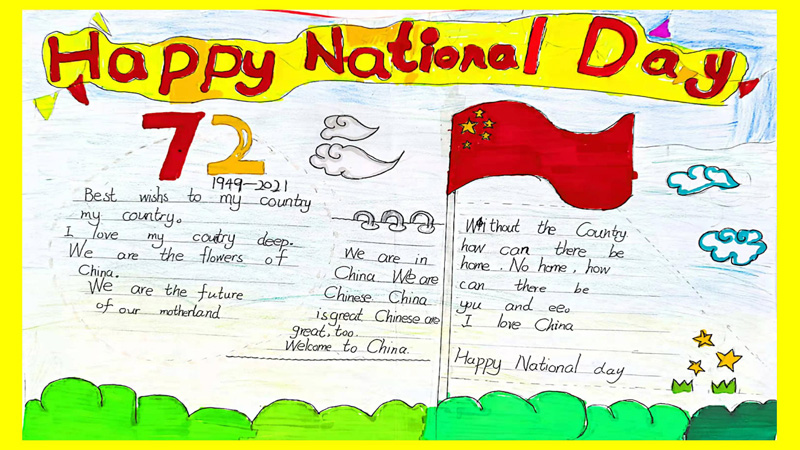 Happy National Day
72
1949-2021
Best wishs to my country
my country。
I love my coutry deep.
We are the flowers of
China.
We are the future
of our motherland
We are in
China We are
Chinese China
is great Chinese are
great, too
Welcome to China.
Without the Country
how can there be
home. No home, how
can there be
you and ee。
I love China
Happy National day